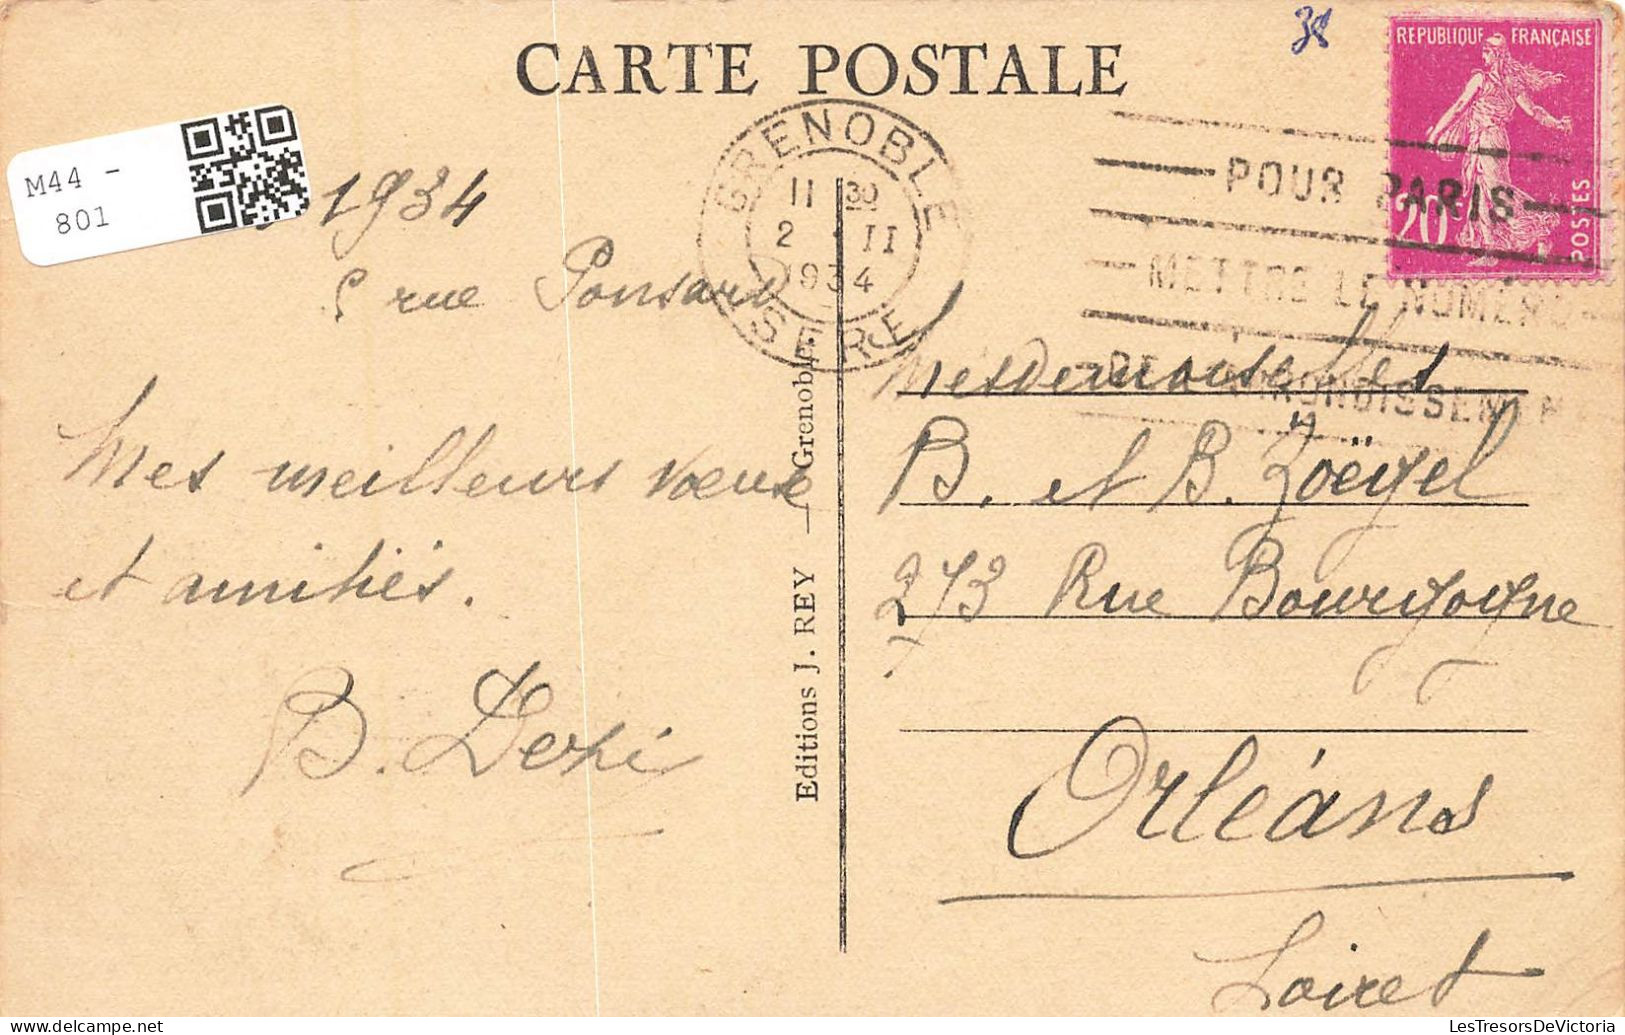 CARTE POSTALE
38
REPUBLIQUE FRANÇAISE
20c
POSTES
M44 -
801
1934
5 rue Ponsard
GRENOBLE
11 30
2 · II
1934
ISERE
POUR PARIS
METTRE LE NUMÉRO
DE L'ARRONDISSEMENT
Mes meilleurs voeux
et amitiés.
Editions J. REY — Grenoble
Mesdemoiselles
B. et B. Zoëgel
273 Rue Bourgogne
Orléans
Loiret
LesTresorsDeVictoria